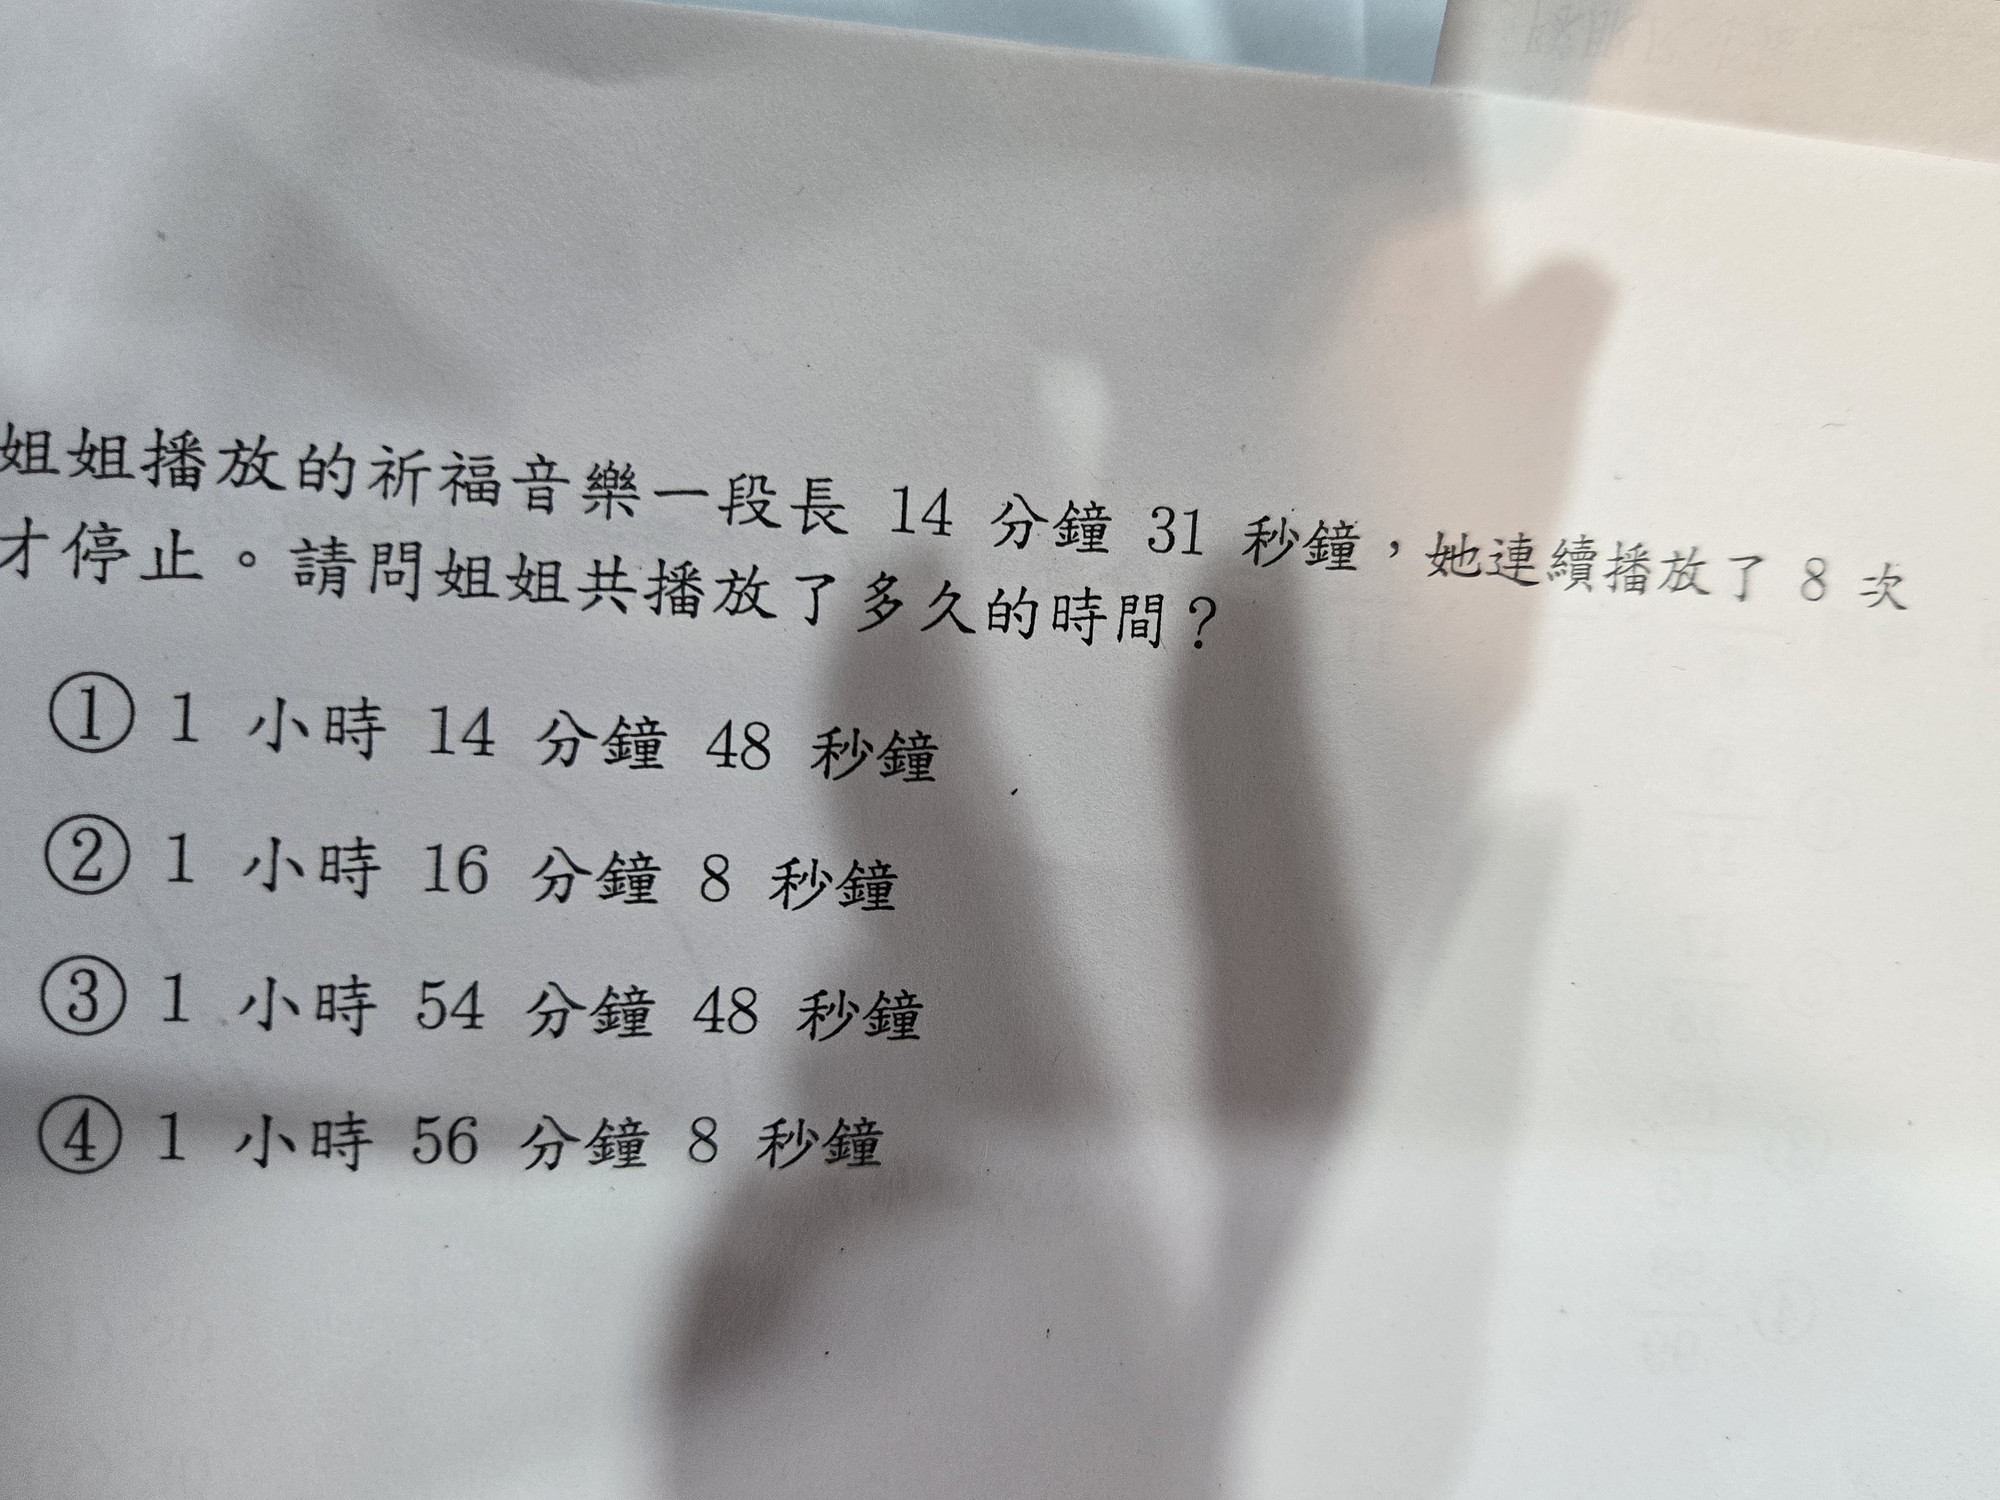 姐姐播放的祈福音樂一段長 14 分鐘 31 秒鐘，她連續播放了 8 次
才停止。請問姐姐共播放了多久的時間？
① 1 小時 14 分鐘 48 秒鐘
② 1 小時 16 分鐘 8 秒鐘
③ 1 小時 54 分鐘 48 秒鐘
④ 1 小時 56 分鐘 8 秒鐘